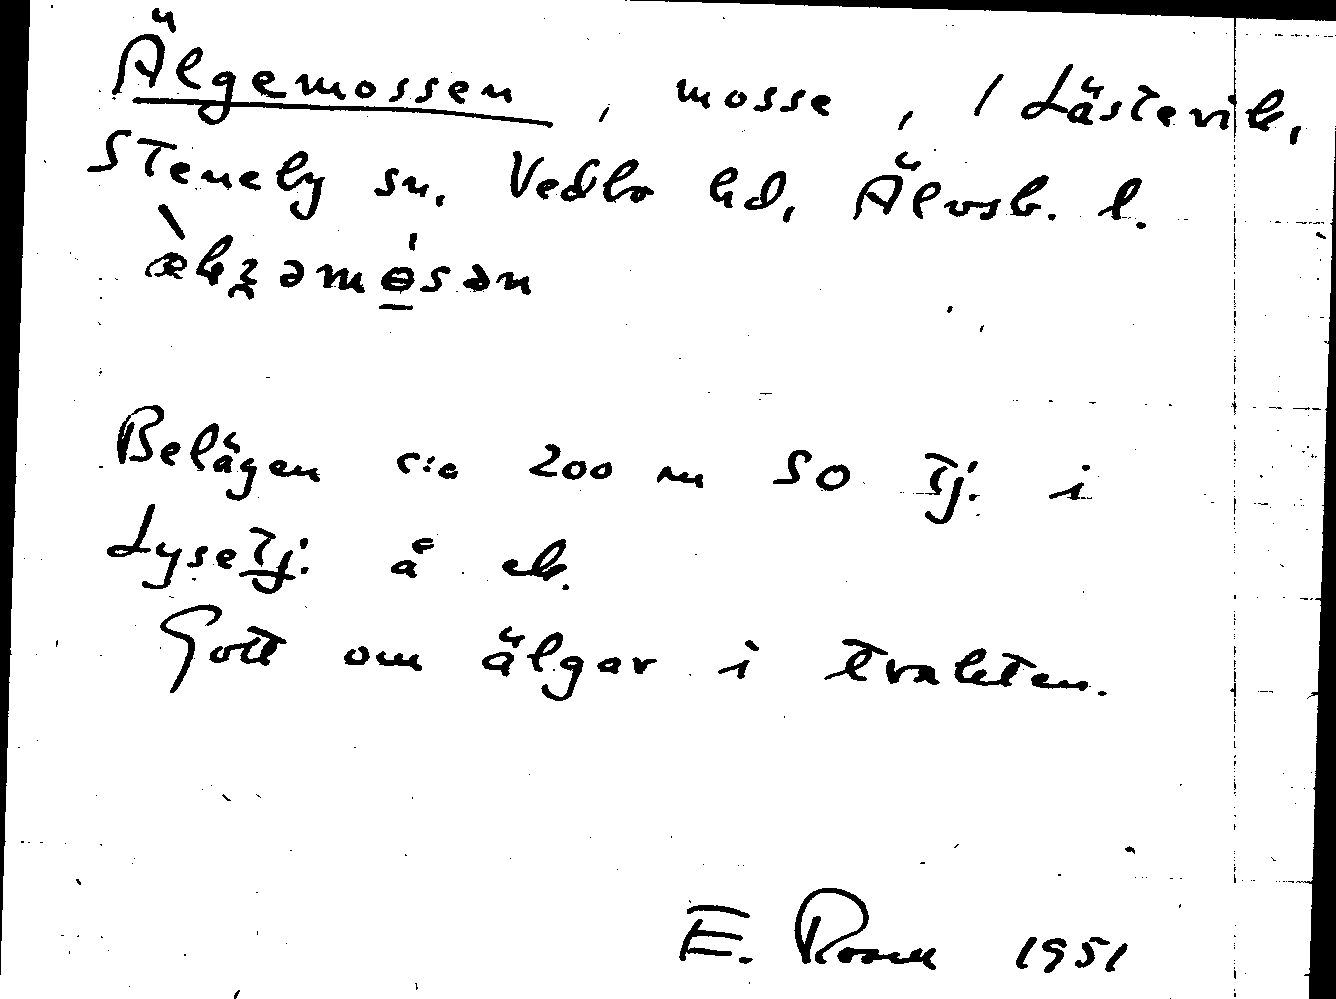 Älgemossen, mosse, / Lästevik,
Steneby sn. Vedbo hd, Älvsb. l.
Belägen c:a 200 m SO Tj. i
LyseTj. å ek.
Gott om älgar i trakten.
E. Rosell 1951